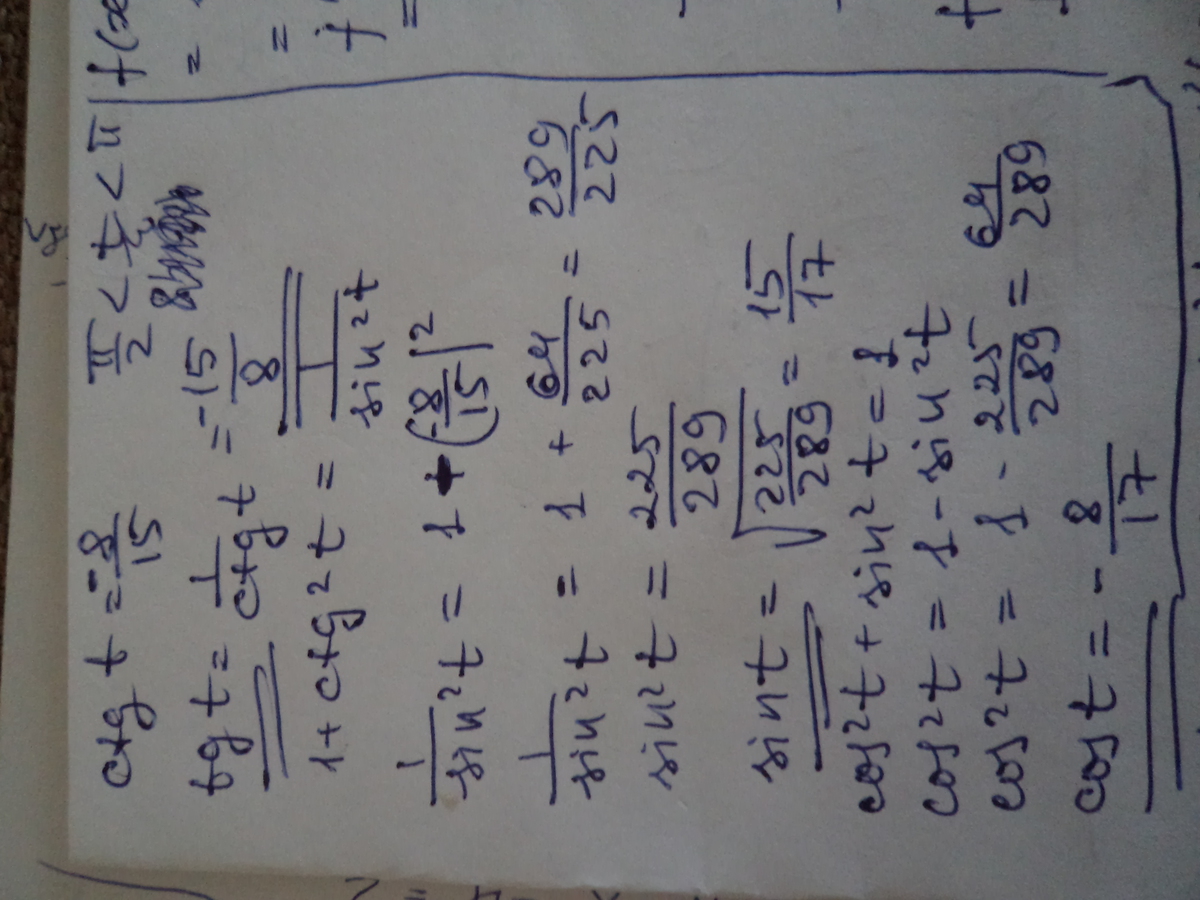 ctg t = -8/15 π/2 < t < π
tg t = 1/ctg t = -15/8 8
1 + ctg²t = 1/sin²t
1/sin²t = 1 + (-8/15)²
1/sin²t = 1 + 64/225 = 289/225
sin²t = 225/289
sin t = √225/289 = 15/17
cos²t + sin²t = 1
cos²t = 1 - sin²t
cos²t = 1 - 225/289 = 64/289
cos t = - 8/17
f(x
=
=
f
=